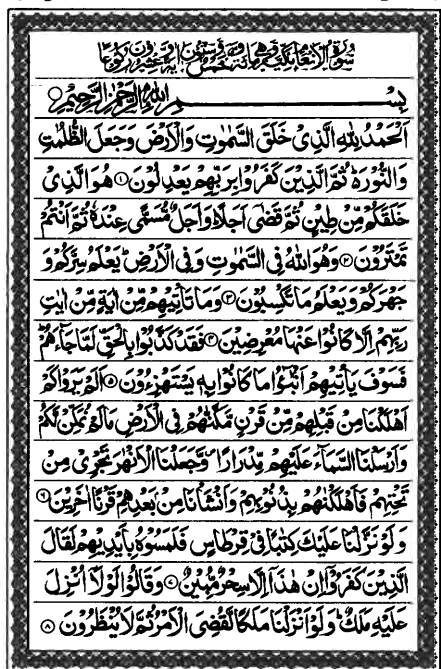 سورة الانعام مکیة وهی مائة وخمس وستون ایة وعشرون رکوعا
بِسْمِ اللهِ الرَّحْمٰنِ الرَّحِیْمِ
اَلْحَمْدُ لِلّٰهِ الَّذِیْ خَلَقَ السَّمٰوٰتِ وَالْاَرْضَ وَجَعَلَ الظُّلُمٰتِ
وَالنُّوْرَ ثُمَّ الَّذِیْنَ كَفَرُوْا بِرَبِّهِمْ یَعْدِلُوْنَ ۱ هُوَ الَّذِیْ
خَلَقَكُمْ مِّنْ طِیْنٍ ثُمَّ قَضٰۤی اَجَلًا وَاَجَلٌ مُّسَمًّی عِنْدَهٗ ثُمَّ اَنْتُمْ
تَمْتَرُوْنَ ۲ وَهُوَ اللهُ فِی السَّمٰوٰتِ وَفِی الْاَرْضِ یَعْلَمُ سِرَّكُمْ وَ
جَهْرَكُمْ وَیَعْلَمُ مَا تَكْسِبُوْنَ ۳ وَمَا تَاْتِیْهِمْ مِّنْ اٰیَةٍ مِّنْ اٰیٰتِ
رَبِّهِمْ اِلَّا كَانُوْا عَنْهَا مُعْرِضِیْنَ ۴ فَقَدْ كَذَّبُوْا بِالْحَقِّ لَمَّا جَآءَهُمْ
فَسَوْفَ یَاْتِیْهِمْ اَنْۢبٰٓؤُا مَا كَانُوْا بِهٖ یَسْتَهْزِءُوْنَ ۵ اَلَمْ یَرَوْا كَمْ
اَهْلَكْنَا مِنْ قَبْلِهِمْ مِّنْ قَرْنٍ مَّكَّنّٰهُمْ فِی الْاَرْضِ مَا لَمْ نُمَكِّنْ لَّكُمْ
وَاَرْسَلْنَا السَّمَآءَ عَلَیْهِمْ مِّدْرَارًا وَّجَعَلْنَا الْاَنْهٰرَ تَجْرِیْ مِنْ
تَحْتِهِمْ فَاَهْلَكْنٰهُمْ بِذُنُوْبِهِمْ وَاَنْشَاْنَا مِنْۢ بَعْدِهِمْ قَرْنًا اٰخَرِیْنَ ۶
وَلَوْ نَزَّلْنَا عَلَیْكَ كِتٰبًا فِیْ قِرْطَاسٍ فَلَمَسُوْهُ بِاَیْدِیْهِمْ لَقَالَ
الَّذِیْنَ كَفَرُوْۤا اِنْ هٰذَاۤ اِلَّا سِحْرٌ مُّبِیْنٌ ۷ وَقَالُوْا لَوْلَاۤ اُنْزِلَ
عَلَیْهِ مَلَكٌ وَلَوْ اَنْزَلْنَا مَلَكًا لَّقُضِیَ الْاَمْرُ ثُمَّ لَا یُنْظَرُوْنَ ۸